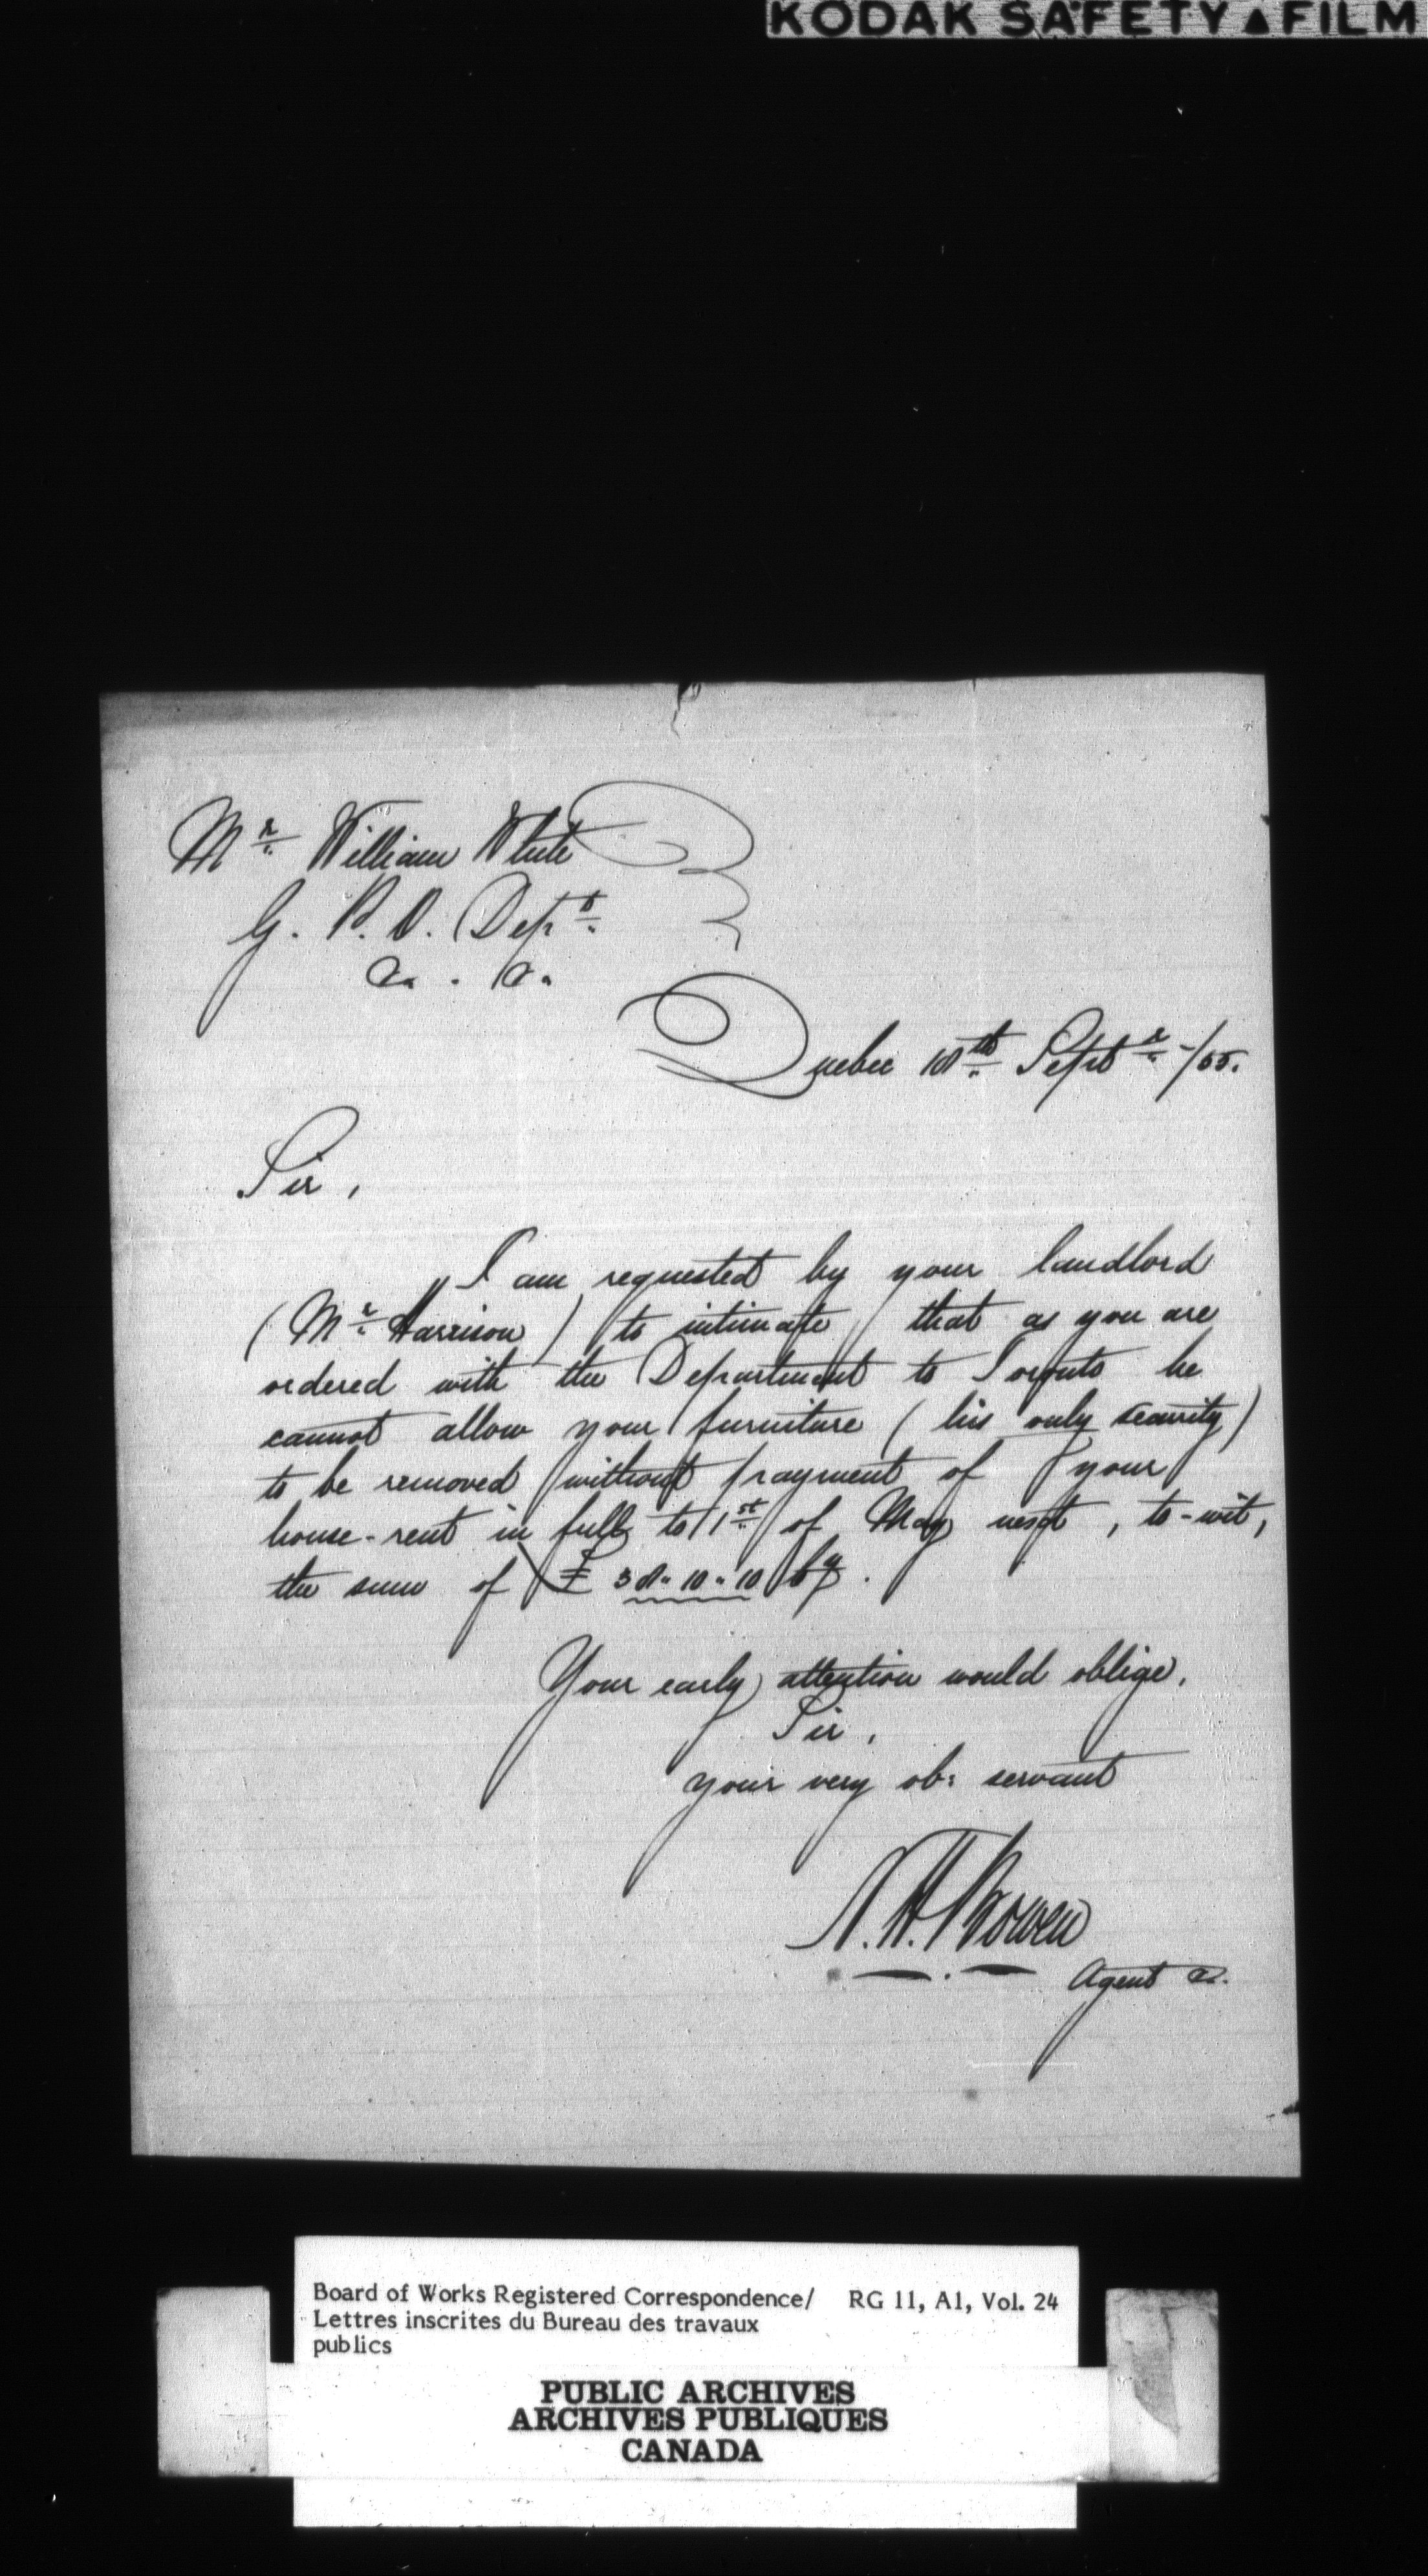 KODAK SAFETY ▲ FILM
Mr. William White
G. P. O. Dept.
&c. &c.
Quebec 18th Septr -/55.
Sir,
I am requested by your landlord
(Mr. Harrison) to intimate that as you are
ordered with the Department to Toronto he
cannot allow your furniture (his only security)
to be removed without payment of your
house-rent in full to 1st of May next, to-wit,
the sum of £ 38.. 10 .. 10 Cy.
Your early attention would oblige,
Sir,
your very ob: servant
N. H. Bowen
Agent &c.
Board of Works Registered Correspondence/ RG 11, A1, Vol. 24
Lettres inscrites du Bureau des travaux
publics
PUBLIC ARCHIVES
ARCHIVES PUBLIQUES
CANADA